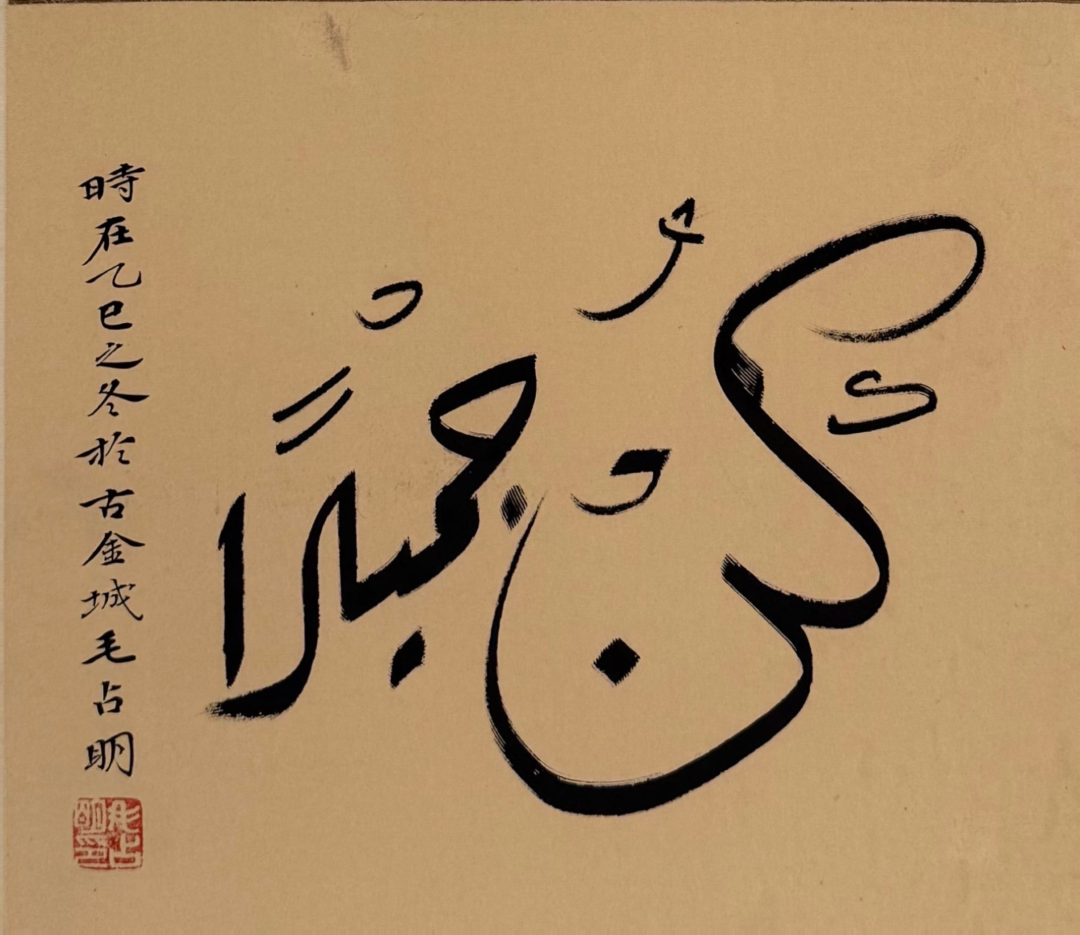 كُنْ جَمِيلًا
時在乙巳之冬於古金城毛占明
毛占明印